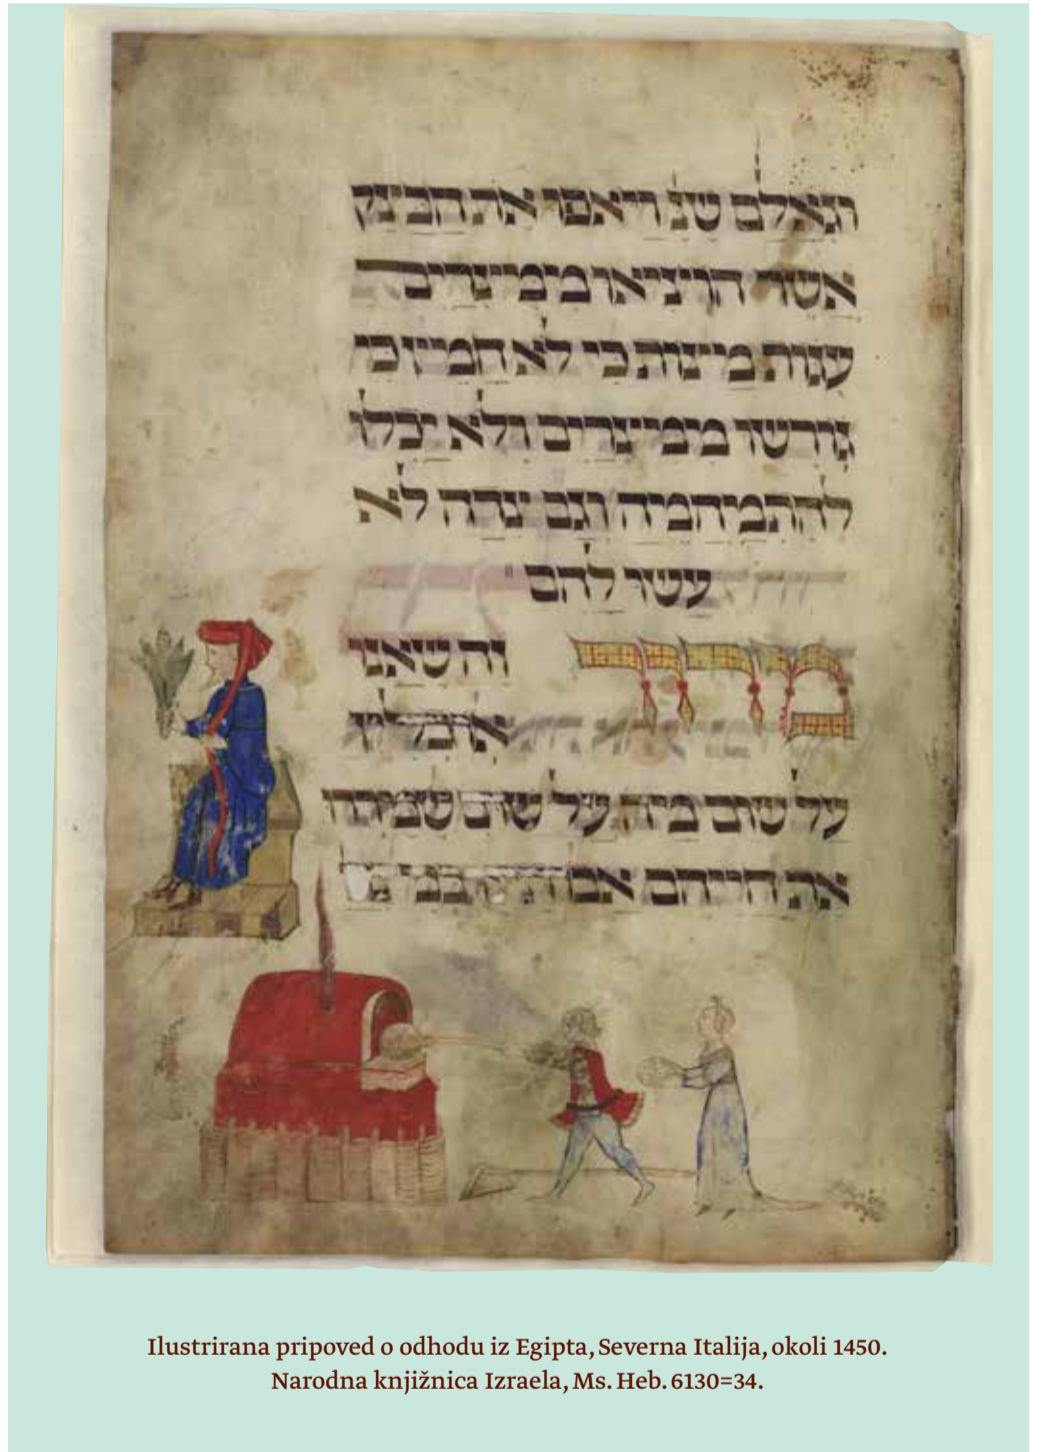 וגאלם שנ ויאפו את הבצק
אשר הוציאו ממצרים
עגות מצות כי לא חמץ כי
גורשו ממצרים ולא יכלו
להתמהמה וגם צדה לא
עשו להם
מרור זה שאנו
על שום מה על שום
את חייהם
Ilustrirana pripoved o odhodu iz Egipta, Severna Italija, okoli 1450.
Narodna knjižnica Izraela, Ms. Heb. 6130=34.